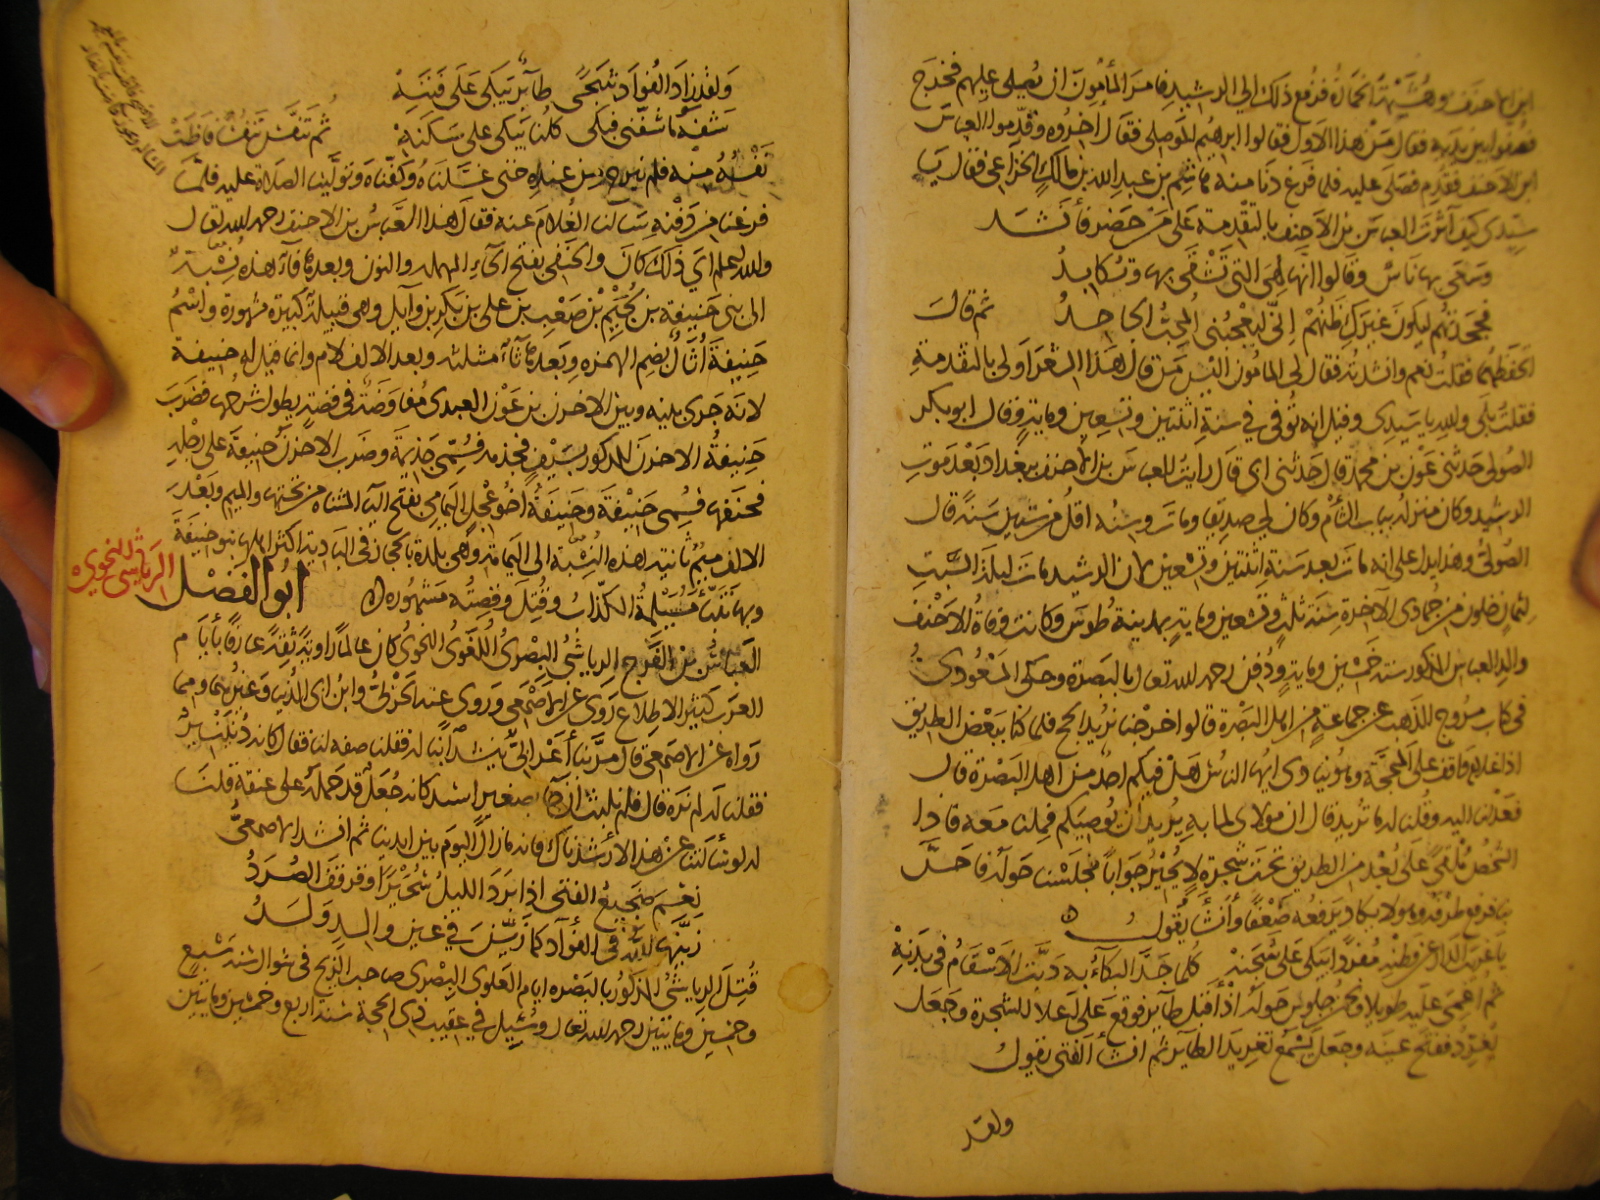 ابن الاحنف وهشيمة الخمارة فرفع ذلك الى الرشيد فامر المأمون ان يصلى عليهم فخرج
فصفوا بين يديه فقال من هذا الاول فقالوا ابرهيم الموصلى فقال اخروه وقدموا العباس
ابن الاحنف فقدم فصلى عليه فلما فرغ دنا منه هاشم بن عبد الله بن مالك الخزاعى فقال يا
سيدى كيف آثرت العباس بن الاحنف بالتقدمة على من حضر فأنشد
وسعى بها ناس وقالوا انها لهى التى تشقى بها وتكابد
فجحدتهم ليكون غيرك ظنهم انى ليعجبنى المحب الجاحد ثم قال
اتحفظها فقلت نعم وانشدته فقال لى المامون اليس من قال هذا الشعر اولى بالتقدمة
فقلت بلى والله يا سيدى وقيل انه توفى فى سنة اثنتين وتسعين وماية وقال ابو بكر
الصولى حدثنى عون بن محمد قال حدثنى ابى قال رايت العباس بن الاحنف ببغداد بعد موت
الرشيد وكان منزله بباب الشام وكان لى صديقا ومات وسنه اقل من ستين سنة قال
الصولى وهذا يدل على انه مات بعد سنة اثنتين وتسعين لان الرشيد مات ليلة السبت
لثلاث خلون من جمادى الاخرة سنة ثلث وتسعين وماية بمدينة طوس وكانت وفاة الاحنف
والد العباس المذكور سنة خمسين وماية ودفن رحمه الله تعالى بالبصرة وحكى المسعودى
فى كتاب مروج الذهب عن جماعة من اهل البصرة قالوا خرجنا نريد الحج فلما كنا ببعض الطريق
اذا غلام واقف على المحجة وهو ينادى ايها الناس هل فيكم احد من اهل البصرة قال
فعدلنا اليه وقلنا له ما تريد قال ان مولاى لما به يريد ان يوصيكم فملنا معه فاذا
الشخص ملقى على بعد من الطريق تحت شجرة لا يحير جوابا فجلسنا حوله فاحس
بنا فرفع طرفه وهو لا يكاد يرفعه ضعفا وأنشأ يقول
يا غريب الدار عن وطنه مفردا يبكى على شجنه كلما جد البكاء به دبت الاسقام فى بدنه
ثم اغمى عليه طويلا ونحن جلوس حوله اذ اقبل طاير فوقع على اعلا الشجرة وجعل
يغرد ففتح عينيه وجعل يسمع تغريد الطاير ثم انشأ الفتى يقول
ولقد
ولقد زاد الفؤاد شجى طائر يبكى على فننه
شفه ما شفنى فبكى كلنا يبكى على سكنه ثم تنفس تنفسا فاظت
نفسه منه فلم نبرح من عنده حتى غسلناه وكفناه وتولينا الصلاة عليه فلما
فرغنا من دفنه سالنا الغلام عنه فقال هذا العباس بن الاحنف رحمه الله تعالى
والله اعلم اى ذلك كان والحنفى بفتح الحاء المهملة والنون وبعدها فآ هذه نسبة
الى بنى حنيفة بن لجيم بن صعب بن على بن بكر بن وآيل وهى قبيلة كبيرة مشهورة واسم
حنيفة أثال بضم الهمزه وبعدها ثآ مثلثه وبعد الالف لام وانما قيل له حنيفة
لانه جرى بينه وبين الاحزن بن عوف العبدى مفاوضة فى قصة يطول شرحها فضرب
حنيفة الاحزن المذكور بسيف فجذمه فسمى جذيمة وضرب الاحزن حنيفة على رجله
فحنفها فسمى حنيفة وحنيفة اخو عجل اليمامى بفتح اليا المثناه من تحتها والميم وبعد
الالف ميم ثانية هذه النسبة الى اليمامة وهى بلدة بالحجاز فى البادية اكثر اهلها بنو حنيفة
وبها تنبأ مسيلمة الكذاب وقتل وقصته مشهورة ابو الفضل
الرياشى النحوى
العباس بن الفرج الرياشى البصرى اللغوى النحوى كان عالما راوية ثقة عارفا بأيام
العرب كثير الاطلاع روى عن الاصمعى وروى عنه الحربى وابن ابى الدنيا وغيرهما ومما
رواه عن الاصمعى قال مر بنا أعرابى ينشد ابنا له فقلنا صفه لنا فقال كانه دنينير
فقلنا له لم نره قال فلم نلبث ان جا بصغير اسيد كانه جعل قد حمله على عنقه فقلنا
له لو سالتنا عن هذا لأرشدناك فانه مازال اليوم بين ايدينا ثم انشد الاصمعى
نعم ضجيع الفتى اذا برد الليل سحيرا وقرقف الصرد
زينها الله فى الفؤاد كما زين فى عين والد ولد
قتل الرياشى المذكور بالبصره ايام العلوى البصرى صاحب الزنج فى شوال سنة سبع
وخمسين ومايتين رحمه الله تعالى وسيل فى عقيب ذى الحجة سنة اربع وخمسين ومايتين